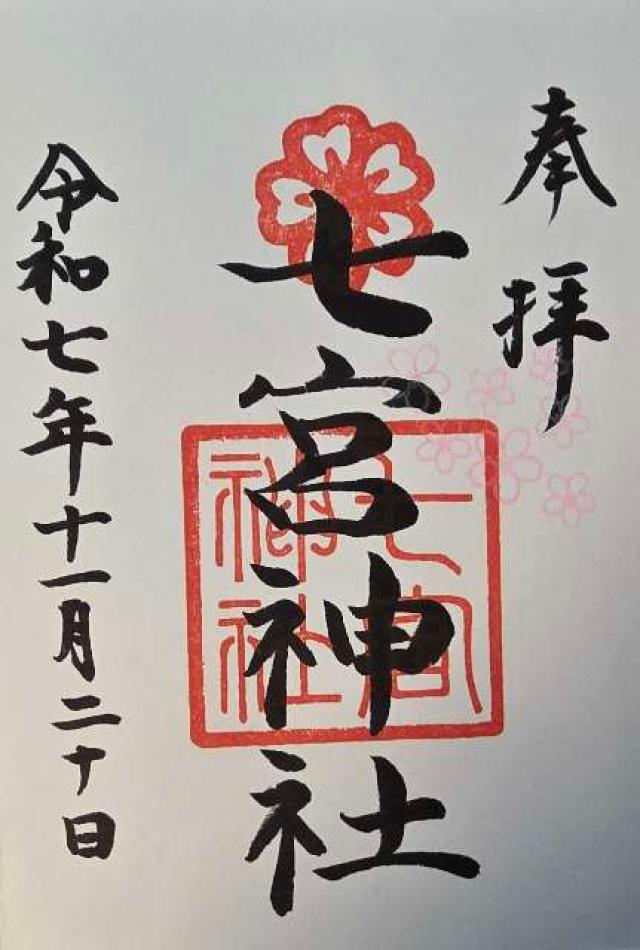 奉拝
七宮神社
七宮神社
令和七年十一月二十日